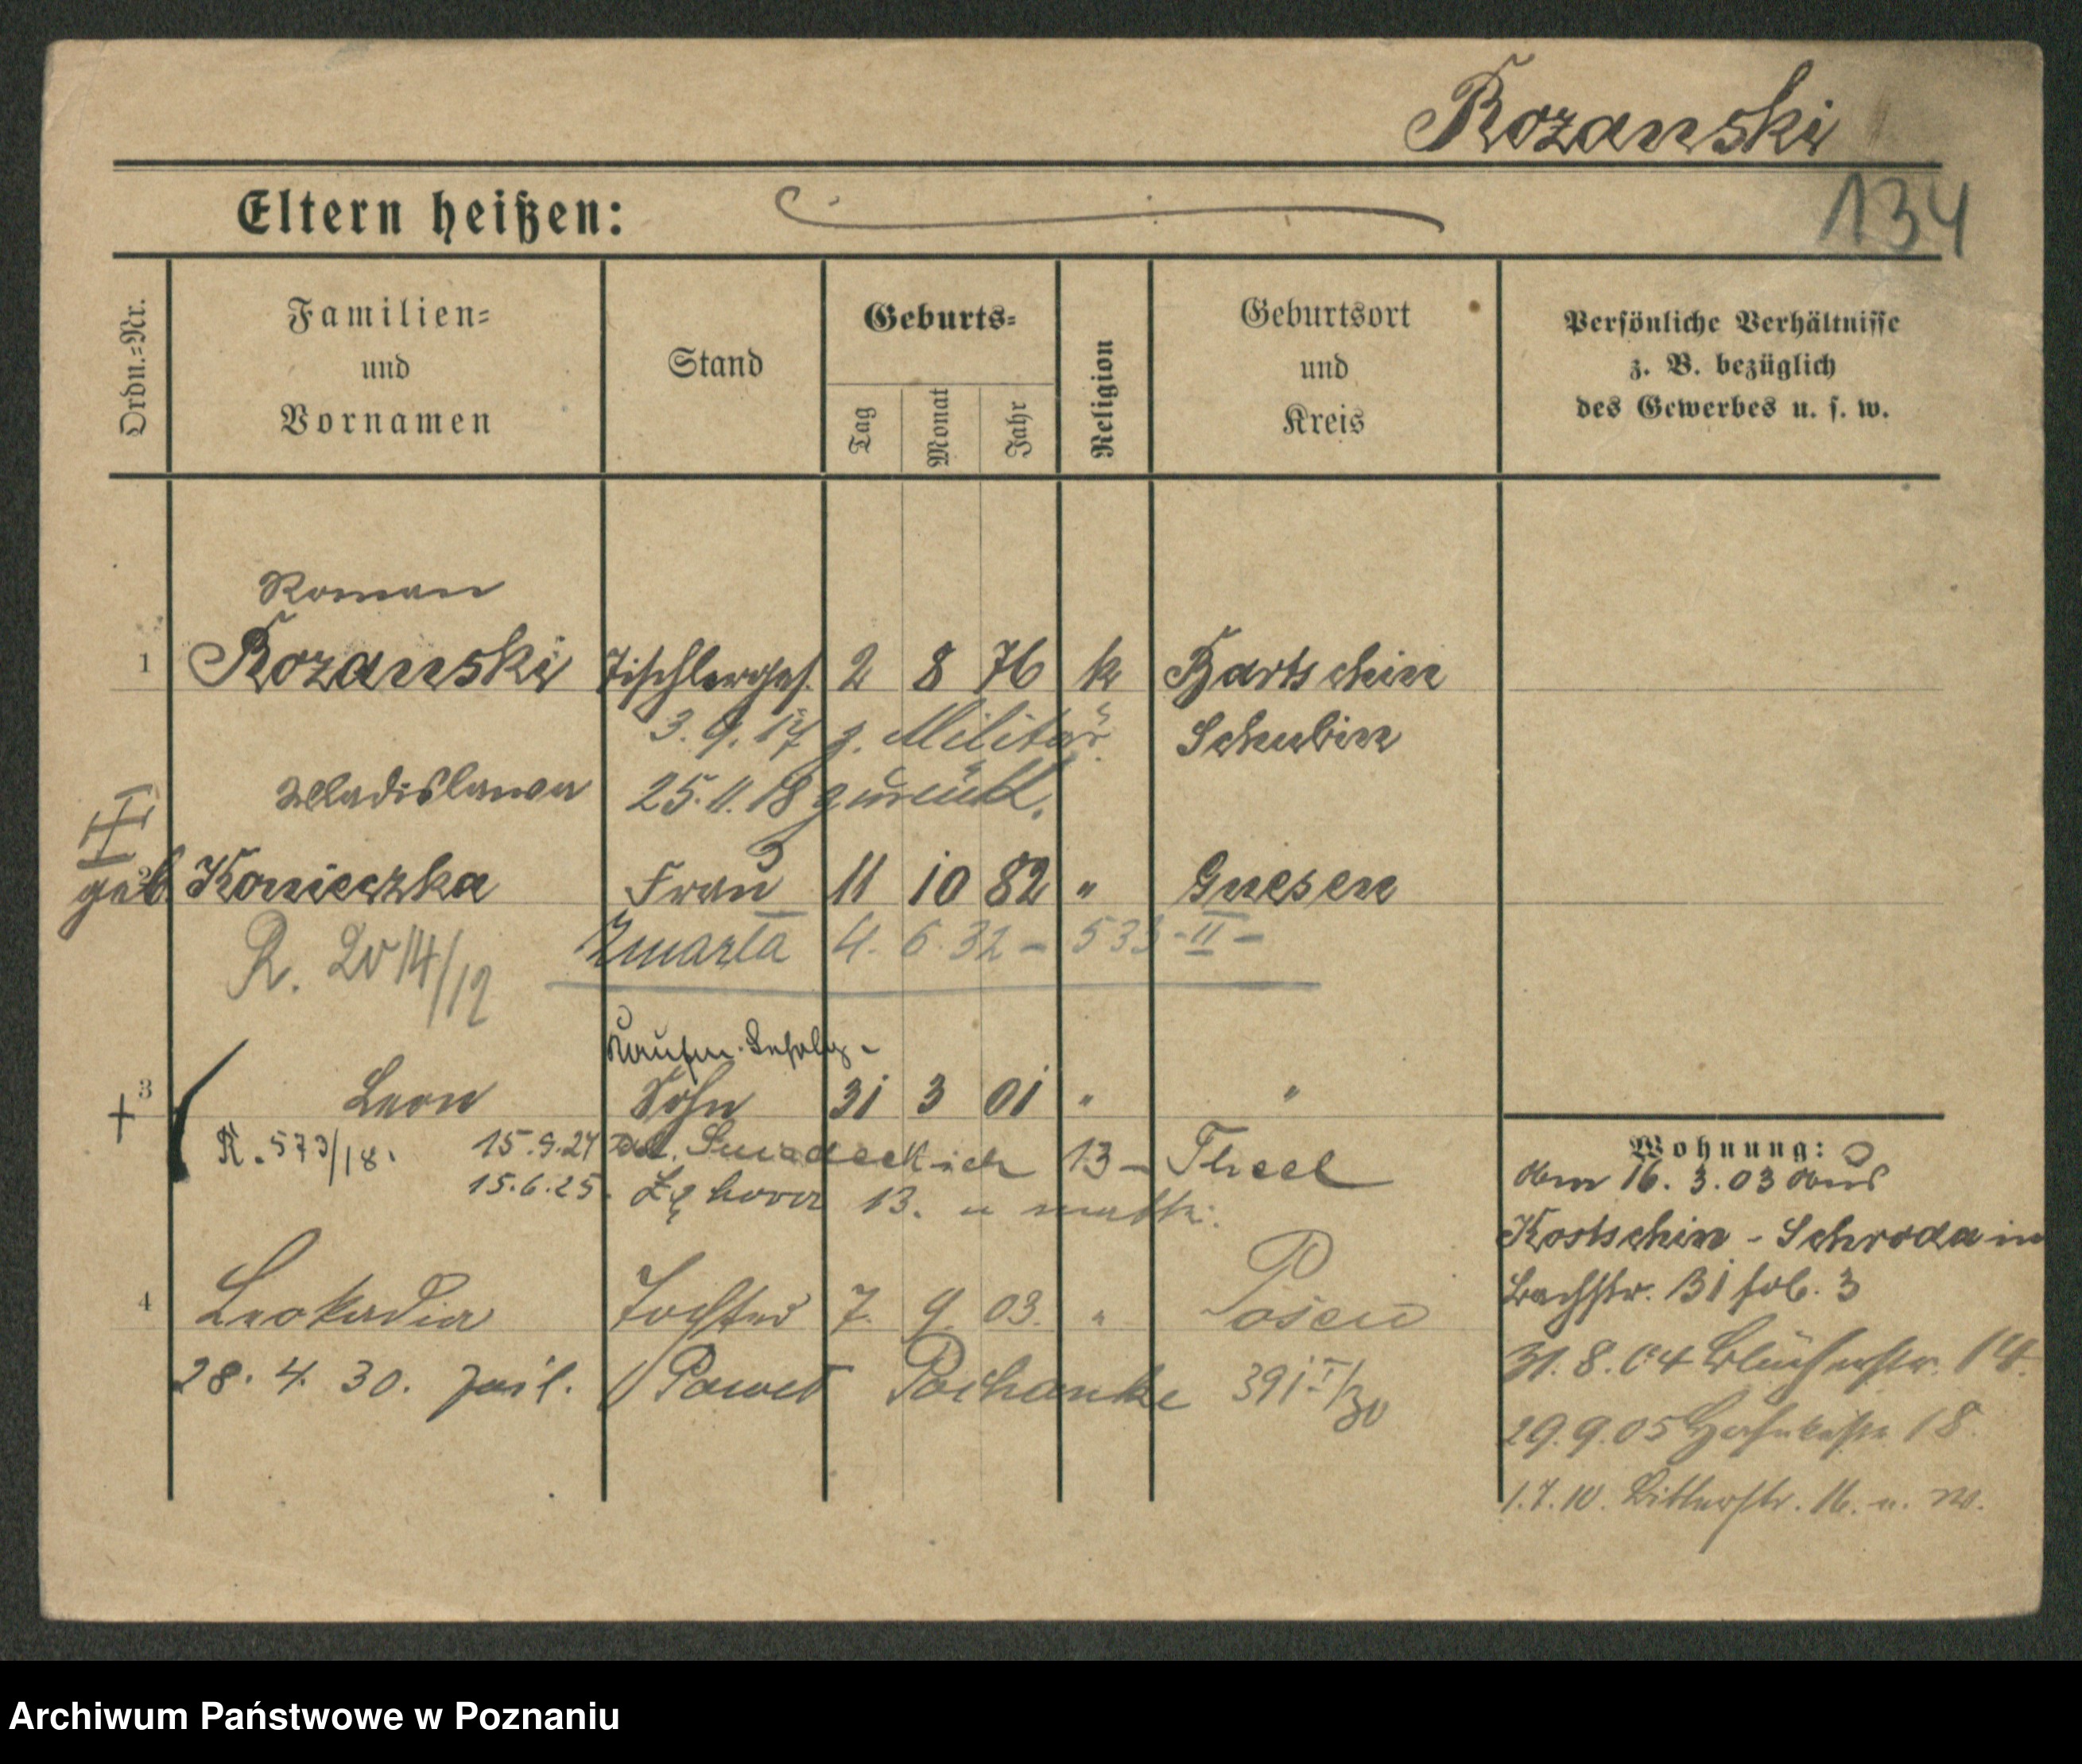 Rozanski
134
Eltern heißen:
Ordn.=Nr.
Familien=
und
Vornamen
Stand
Geburts=
Tag
Monat
Jahr
Religion
Geburtsort
und
Kreis
Persönliche Verhältnisse
z. B. bezüglich
des Gewerbes u. s. w.
Roman
1 Rozanski Tischlerges. 2 8 76 k Bartschin
3. 9. 17 z. Militär. Schubin
Wladislawa 25. 11. 18 zurück.
geb. Konieczka Frau 11 10 82 " Gnesen
R. 2014/12 Zmarła 4. 6. 32 - 533 - II -
Kaufm.
3 Leon Sohn 31 3 01 " "
R. 573/18. 15.9.24 Śniadeckich 13 -
15.6.25. 13. u matki.
4 Leokadia Tochter 7. 9. 03. " Posen
28. 4. 30. Paweł 391 I/30
Wohnung:
am 16. 3. 03 aus
Kostschin - Schroda in
Bachstr. 31 fol. 3
31. 8. 04 Blücherstr. 14.
29. 9. 05 18.
1. 7. 10. Ritterstr. 16.
Archiwum Państwowe w Poznaniu